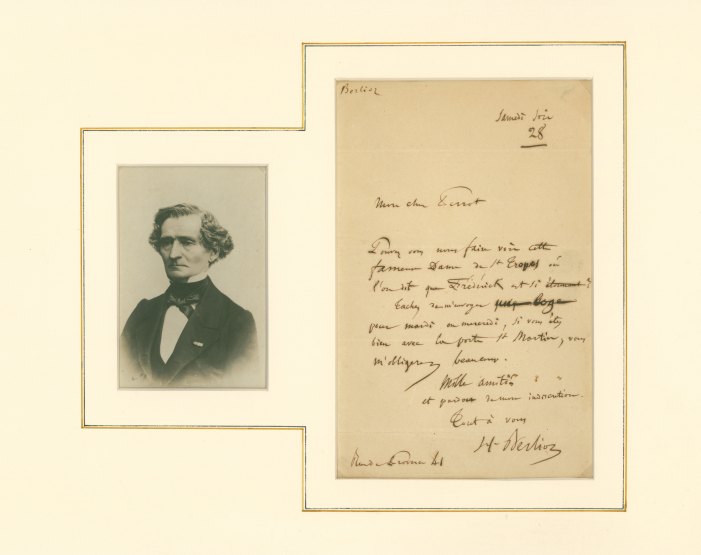 Berlioz
Samedi soir
28
Mon cher Ferrot
Pouvez vous nous faire voir cette
fameuse Dame de St Tropez où
l'on dit que Frédérick est si étonnant?
Tachez de m'envoyer une loge
pour mardi ou mercredi, si vous êtes
bien avec la porte St Martin, vous
m'obligerez beaucoup.
Mille amitiés
et pardon de mon indiscrétion.
Tout à vous
H. Berlioz
Rue de Provence 41